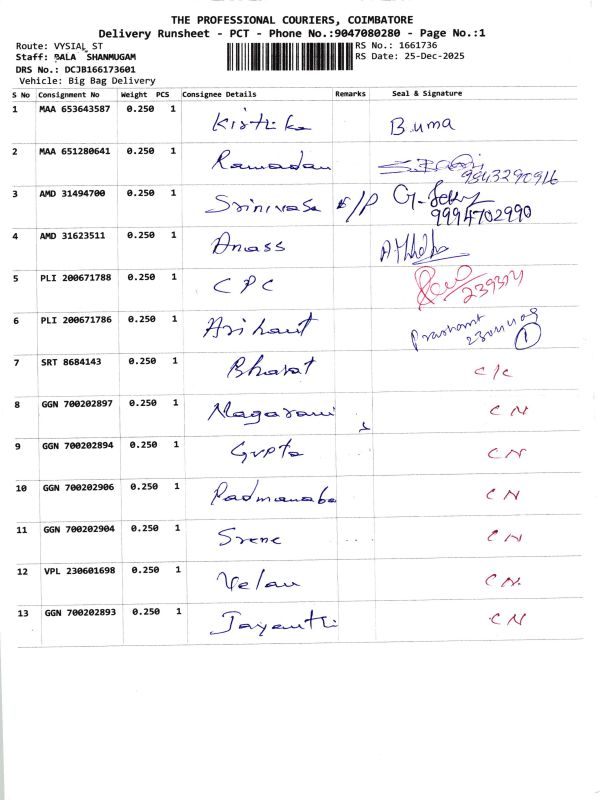 THE PROFESSIONAL COURIERS, COIMBATORE
Delivery Runsheet - PCT - Phone No.:9047080280 - Page No.:1
Route: VYSIAL ST RS No.: 1661736
Staff: BALA SHANMUGAM RS Date: 25-Dec-2025
DRS No.: DCJB166173601
Vehicle: Big Bag Delivery
S No Consignment No Weight PCS Consignee Details Remarks Seal & Signature
1 MAA 653643587 0.250 1 Kirthika Buma
2 MAA 651280641 0.250 1 Ramadan 9843290916
3 AMD 31494700 0.250 1 Srinivasa 9994702990
4 AMD 31623511 0.250 1 Anass
5 PLI 200671788 0.250 1 CPC
6 PLI 200671786 0.250 1 Arihant Prashant
1
7 SRT 8684143 0.250 1 Bharat c/c
8 GGN 700202897 0.250 1 Nagarani CN
9 GGN 700202894 0.250 1 Gupta CN
10 GGN 700202906 0.250 1 Padmanaba CN
11 GGN 700202904 0.250 1 Srene CN
12 VPL 230601698 0.250 1 Velau CN
13 GGN 700202893 0.250 1 Jayanthi CN